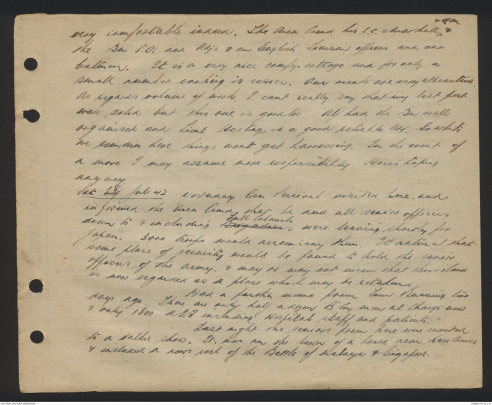 & Bm
very comfortable indeed. The Area Comd his S.C. &
the Bn C.O. and Adjt & an English Liaison officer and one
batman. It is a very nice camp, cottage and for only a
small number cooking is easier. Our meals are very attractive
As regards volume of work I can't really say that my last post
was solid but this one is good. has the Bn well
organised and Lieut is a good reliable Adj. So while
we remain here things wont get harrassing. In the event of
a move I may assume more responsibility. Here's hoping
anyway
Sat July 42 Yesterday Gen Percival visited here and
informed the Area Comdr that he and all senior officers
down to & including were leaving shortly for
Japan. 3000 troops would accompany them. It is natural that
some place of security would be found to hold the senior
officers of the army, & may or may not mean that this island
is now regarded as a place which may be retaken.
Had a further memo from two
days ago. There are only half a dozen 18 Bn men at Changi now
& only 1800 A.I.F. including hospital staff and patients.
Last night the seniors from here were invited
to a battle show. It was on the lawn of a house near
& included a news reel of the Battle of Malaya & Singapore.